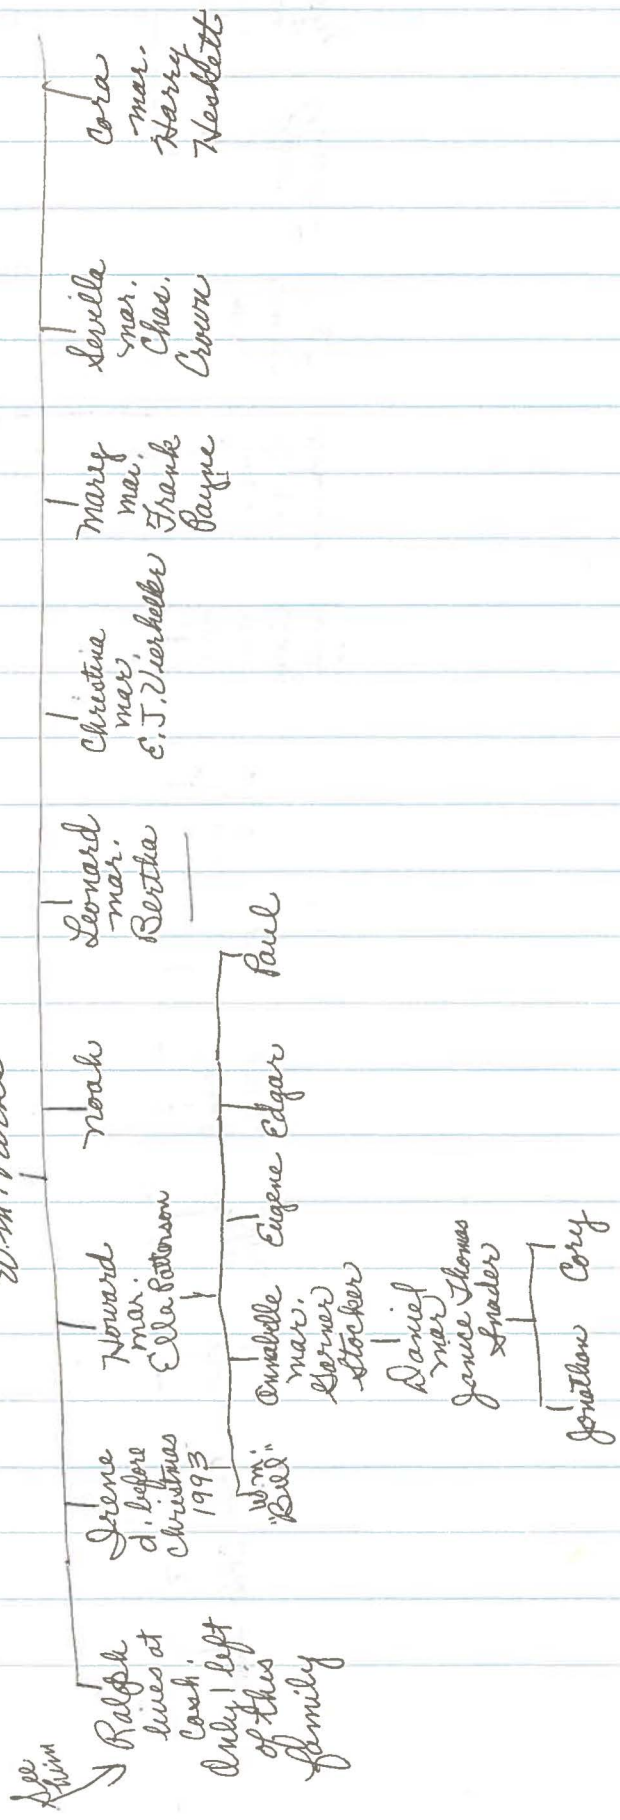 See
him
Ralph
lives at
Cash.
Only left
of this
family
Irene
d. before
Christmas
1993
Howard
mar.
Ella Patterson
Noah
Leonard
mar.
Bertha
Christina
mar.
E. J. Vierheller
Mary
mar.
Frank
Payne
Sevilla
mar.
Chas.
Crown
Cora
mar.
Harry
Heskett
Wm.
"Bill"
Annabelle
mar.
Garner
Stocker
Eugene
Edgar
Paul
Daniel
mar
Janice Thomas
Snader
Jonathan
Cory